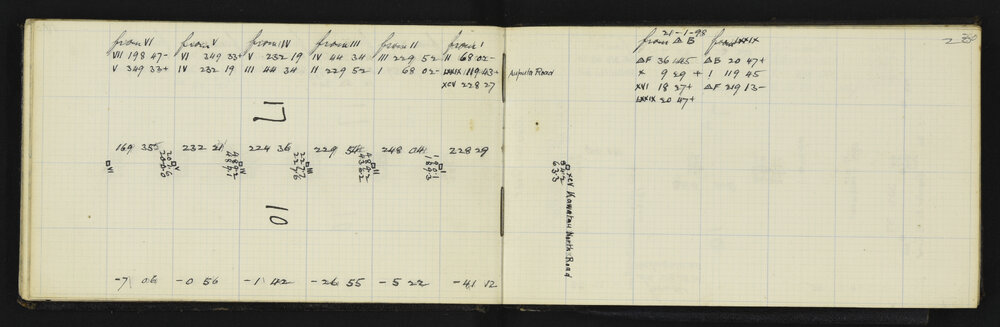 from VI from V from IV from III from II from I
VII 198 47- VI 349 33+ V 232 19 IV 44 34 III 229 52 II 68 02-
V 349 33+ IV 232 19 III 44 34 II 229 52 I 68 02- LXXIX 119 43+
XCV 228 27
17
169 35 232 21 224 36 229 54 248 04 228 29
□VI □V □IV □III □II □I
10
-7 06 -0 56 -1 42 -26 55 -5 22 -41 12
Road
21-1-98
from ΔB from LXXIX
ΔF 36 45 ΔB 20 47+
X 9 29 + I 119 45
XVI 18 27+ ΔF 219 13-
LXXIX 20 47+
□ XCV North Road